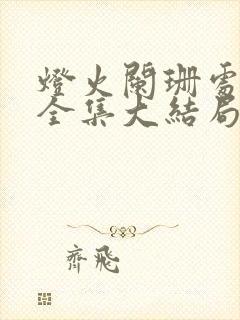 燈火闌珊處
全集大結局
齊飛